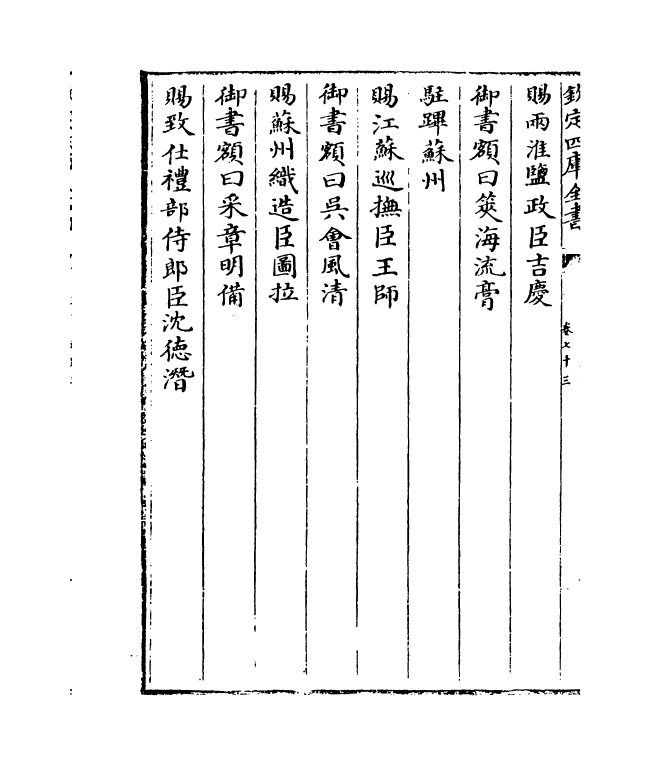 欽定四庫全書
卷七十三
賜兩淮鹽政臣吉慶
御書額曰筴海流膏
駐蹕蘇州
賜江蘇巡撫臣王師
御書額曰吳會風清
賜蘇州織造臣圖拉
御書額曰采章明備
賜致仕禮部侍郎臣沈德潛